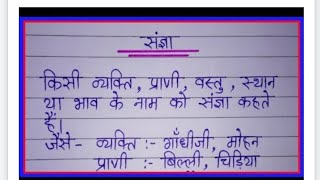 संज्ञा
किसी व्यक्ति, प्राणी, वस्तु, स्थान
या भाव के नाम को संज्ञा कहते
हैं।
जैसे- व्यक्ति :- गाँधीजी, मोहन
प्राणी :- बिल्ली, चिड़िया